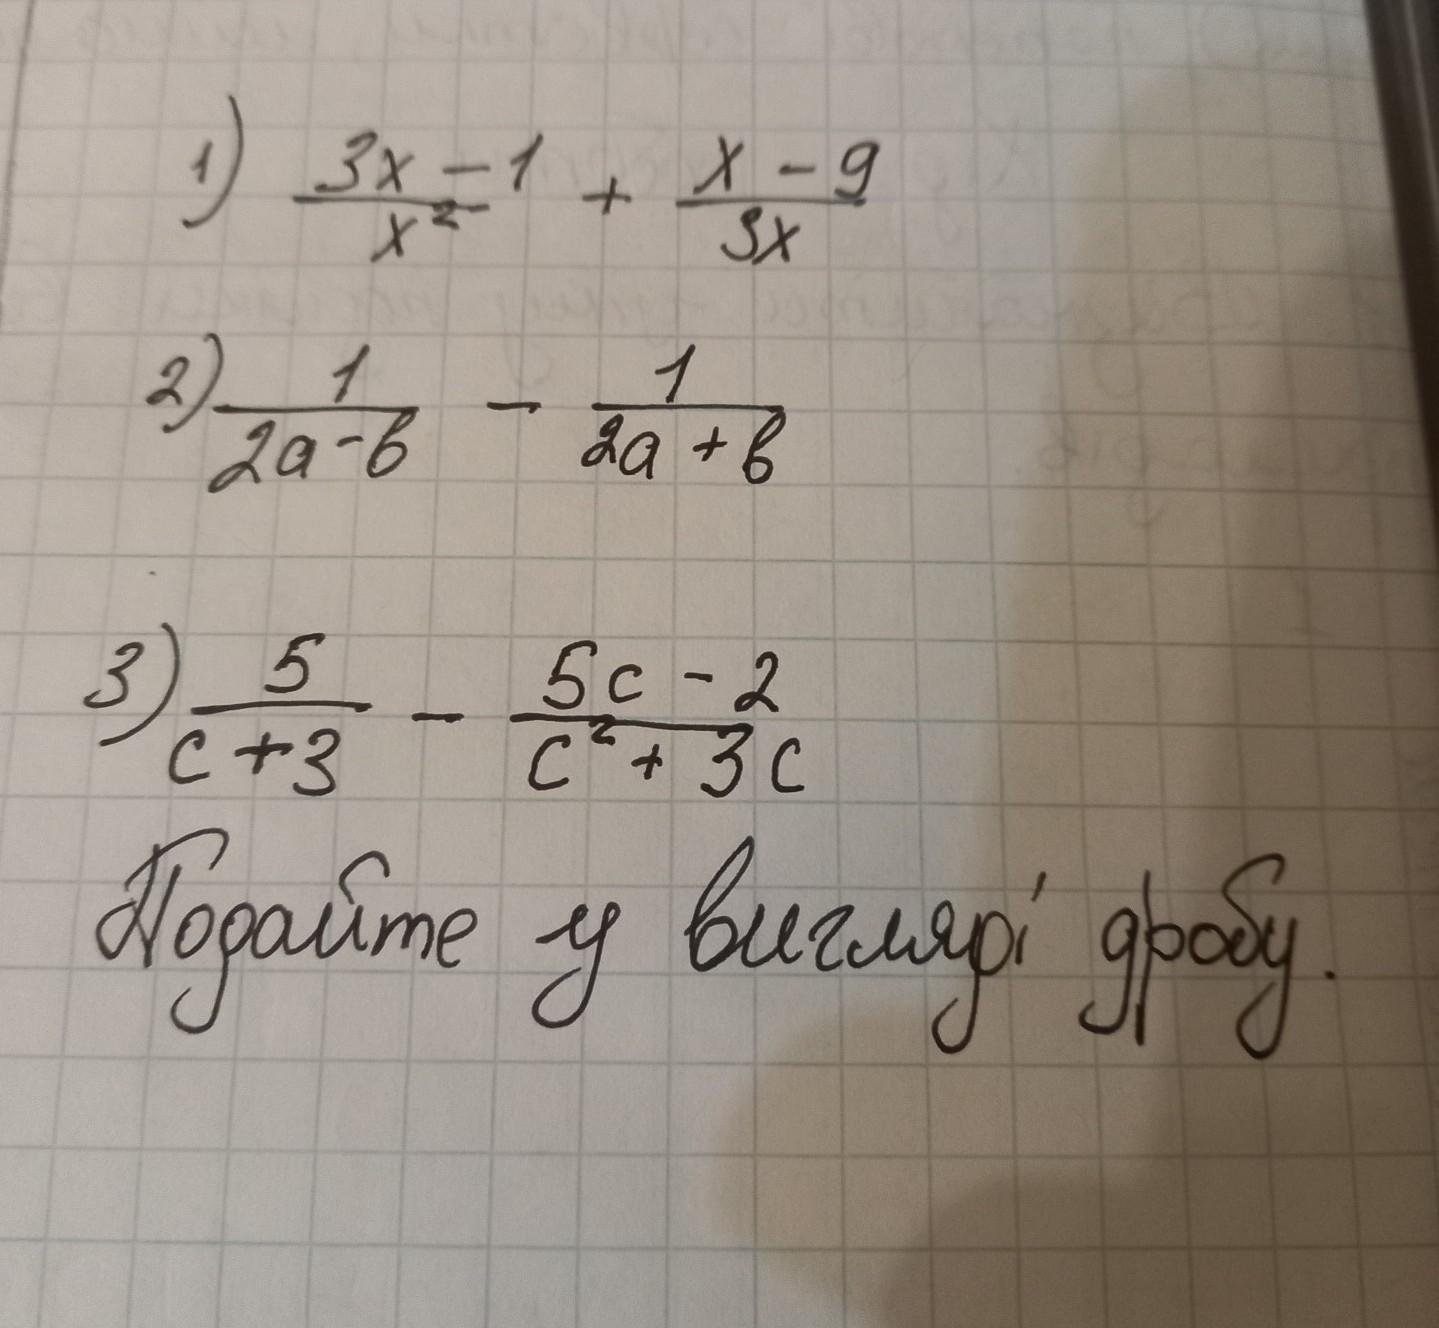 1) (3x - 1)/x² + (x - 9)/3x
2) 1/(2a - b) - 1/(2a + b)
3) 5/(c + 3) - (5c - 2)/(c² + 3c)
Подайте у вигляді дробу.